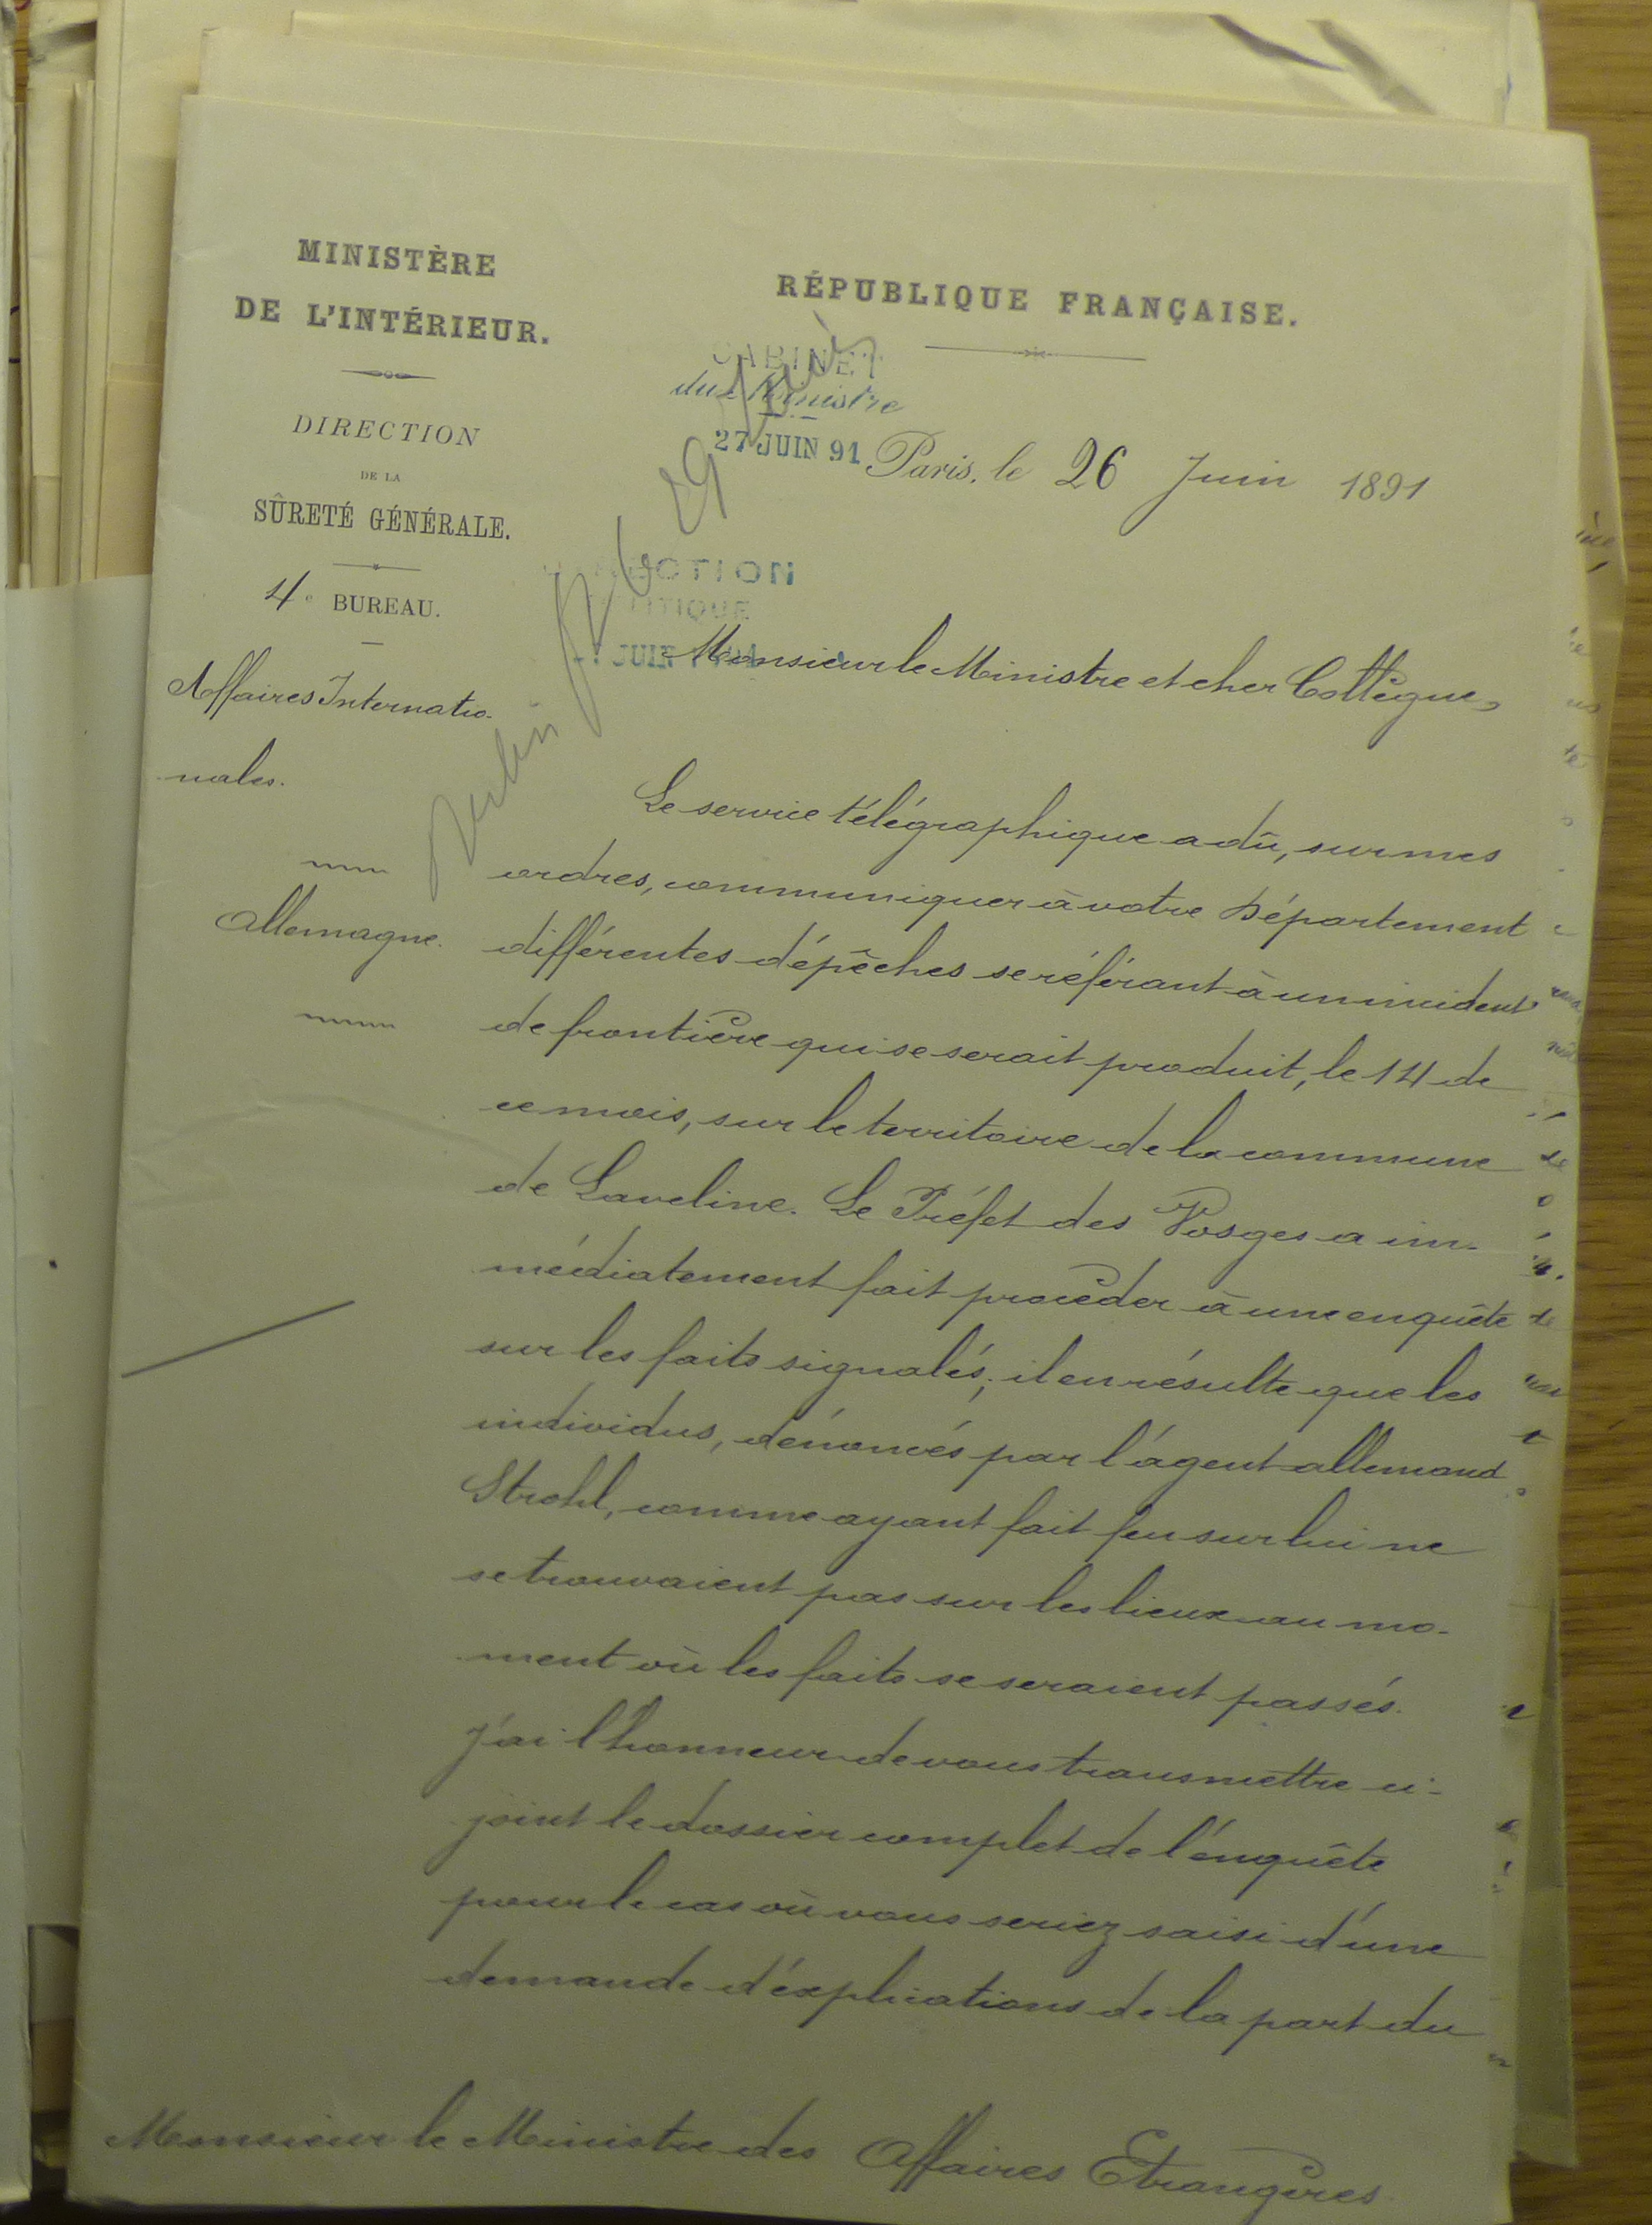 MINISTÈRE
DE L'INTÉRIEUR.
DIRECTION
DE LA
SÛRETÉ GÉNÉRALE.
4e BUREAU.
Affaires Internatio-
nales.
Allemagne.
RÉPUBLIQUE FRANÇAISE.
CABINET
du Ministre
27 JUIN 91
Paris, le 26 Juin 1891
JUIN
Monsieur le Ministre et cher Collègue,
Le service télégraphique a dû, sur mes
ordres, communiquer à votre Département
différentes dépêches se référant à un incident
de frontière qui se serait produit, le 14 de
ce mois, sur le territoire de la commune
de Laveline. Le Préfet des Vosges a im-
médiatement fait procéder à une enquête
sur les faits signalés; il en résulte que les
individus, dénoncés par l'agent allemand
Strohl, comme ayant fait feu sur lui ne
se trouvaient pas sur les lieux au mo-
ment où les faits se seraient passés.
J'ai l'honneur de vous transmettre ci-
joint le dossier complet de l'enquête
pour le cas où vous seriez saisi d'une
demande d'explications de la part du
Monsieur le Ministre des Affaires Etrangères